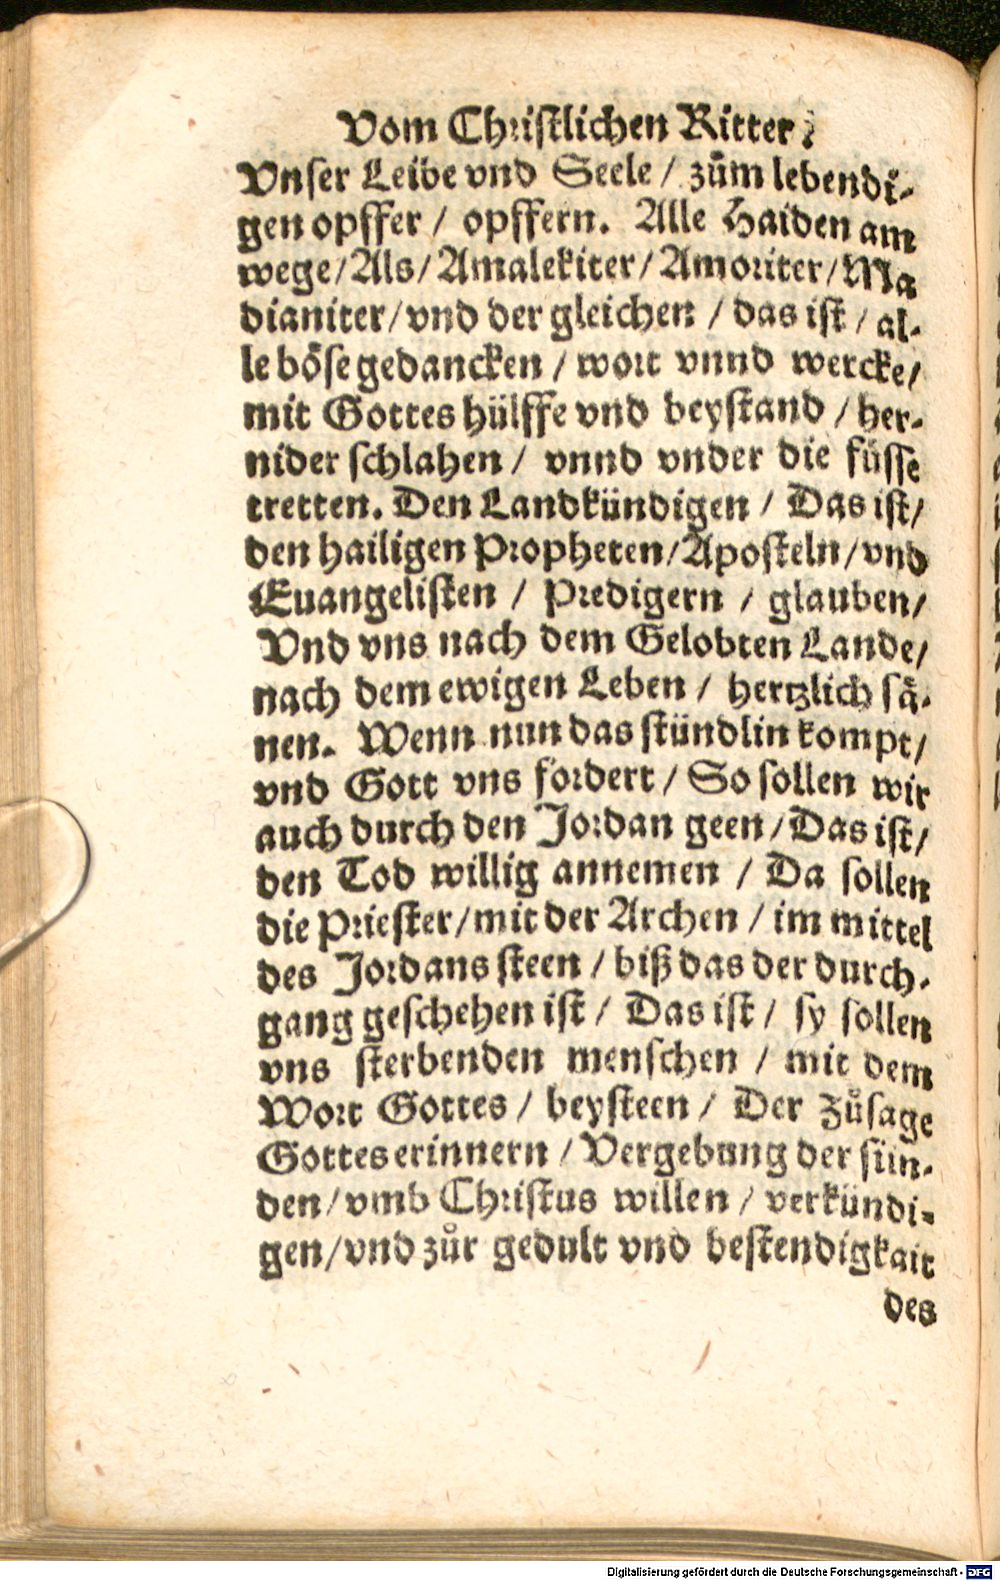 Vom Christlichen Ritter.
Vnser Leibe vnd Seele / zům lebendi-
gen opffer / opffern. Alle Haiden am
wege / Als / Amalekiter / Amoriter / Ma
dianiter / vnd der gleichen / das ist / al-
le böse gedancken / wort vnnd wercke /
mit Gottes hülffe vnd beystand / her-
nider schlahen / vnnd vnder die füsse
tretten. Den Landkündigen / Das ist /
den hailigen Propheten / Aposteln / vnd
Euangelisten / Predigern / glauben /
Vnd vns nach dem Gelobten Lande /
nach dem ewigen Leben / hertzlich sä-
nen. Wenn nun das stündlin kompt /
vnd Gott vns fordert / So sollen wir
auch durch den Jordan geen / Das ist /
den Tod willig annemen / Da sollen
die Priester / mit der Archen / im mittel
des Jordans steen / biß das der durch-
gang geschehen ist / Das ist / sy sollen
vns sterbenden menschen / mit dem
Wort Gottes / beysteen / Der zůsage
Gottes erinnern / Vergebung der sün-
den / vmb Christus willen / verkündi-
gen / vnd zůr gedult vnd bestendigkait
des
Digitalisierung gefördert durch die Deutsche Forschungsgemeinschaft - DFG